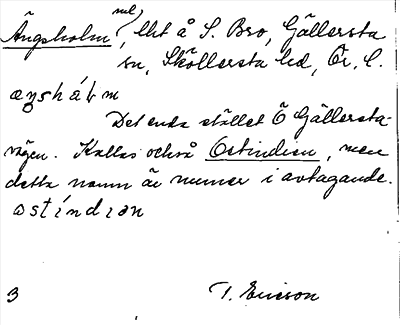 Ängsholm, lht å S. Bro, Gällersta
sn, Sköllersta hd, Ör. l.
æŋshǻɫm
Det enda stället Ö Gällersta-
vägen. Kallas också Ostindien, men
detta namn är numer i avtagande.
ostíndıan
3 T. Ericson